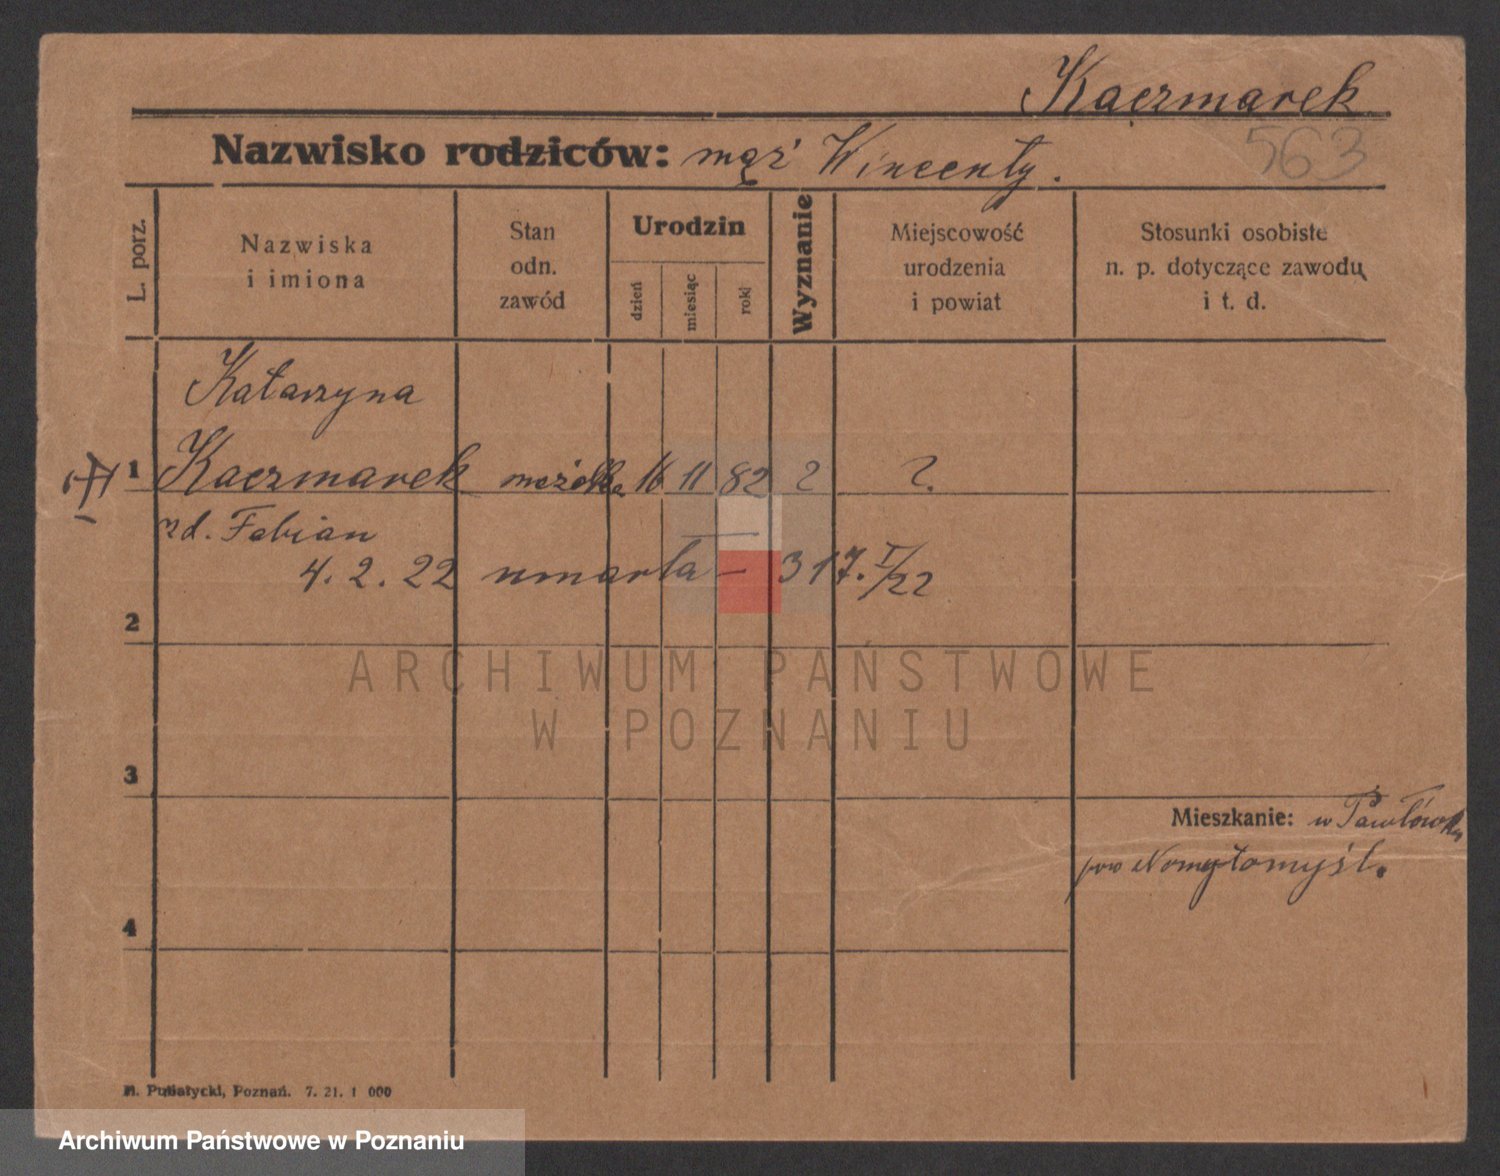 Kaczmarek
Nazwisko rodziców: mąż Wincenty.
563
L. porz.
Nazwiska
i imiona
Stan
odn.
zawód
Urodzin
dzień
miesiąc
rok
Wyznanie
Miejscowość
urodzenia
i powiat
Stosunki osobiste
n. p. dotyczące zawodu
i t. d.
Katarzyna
1 Kaczmarek mężatka 16 11 82 ? ?
zd. Fabian
4. 2. 22 umarła — 317. I/22
2
ARCHIWUM PAŃSTWOWE
W POZNANIU
3
Mieszkanie: w Pawłówku
pow Nowytomyśl.
4
Poznań. 7. 21. 1 000
Archiwum Państwowe w Poznaniu